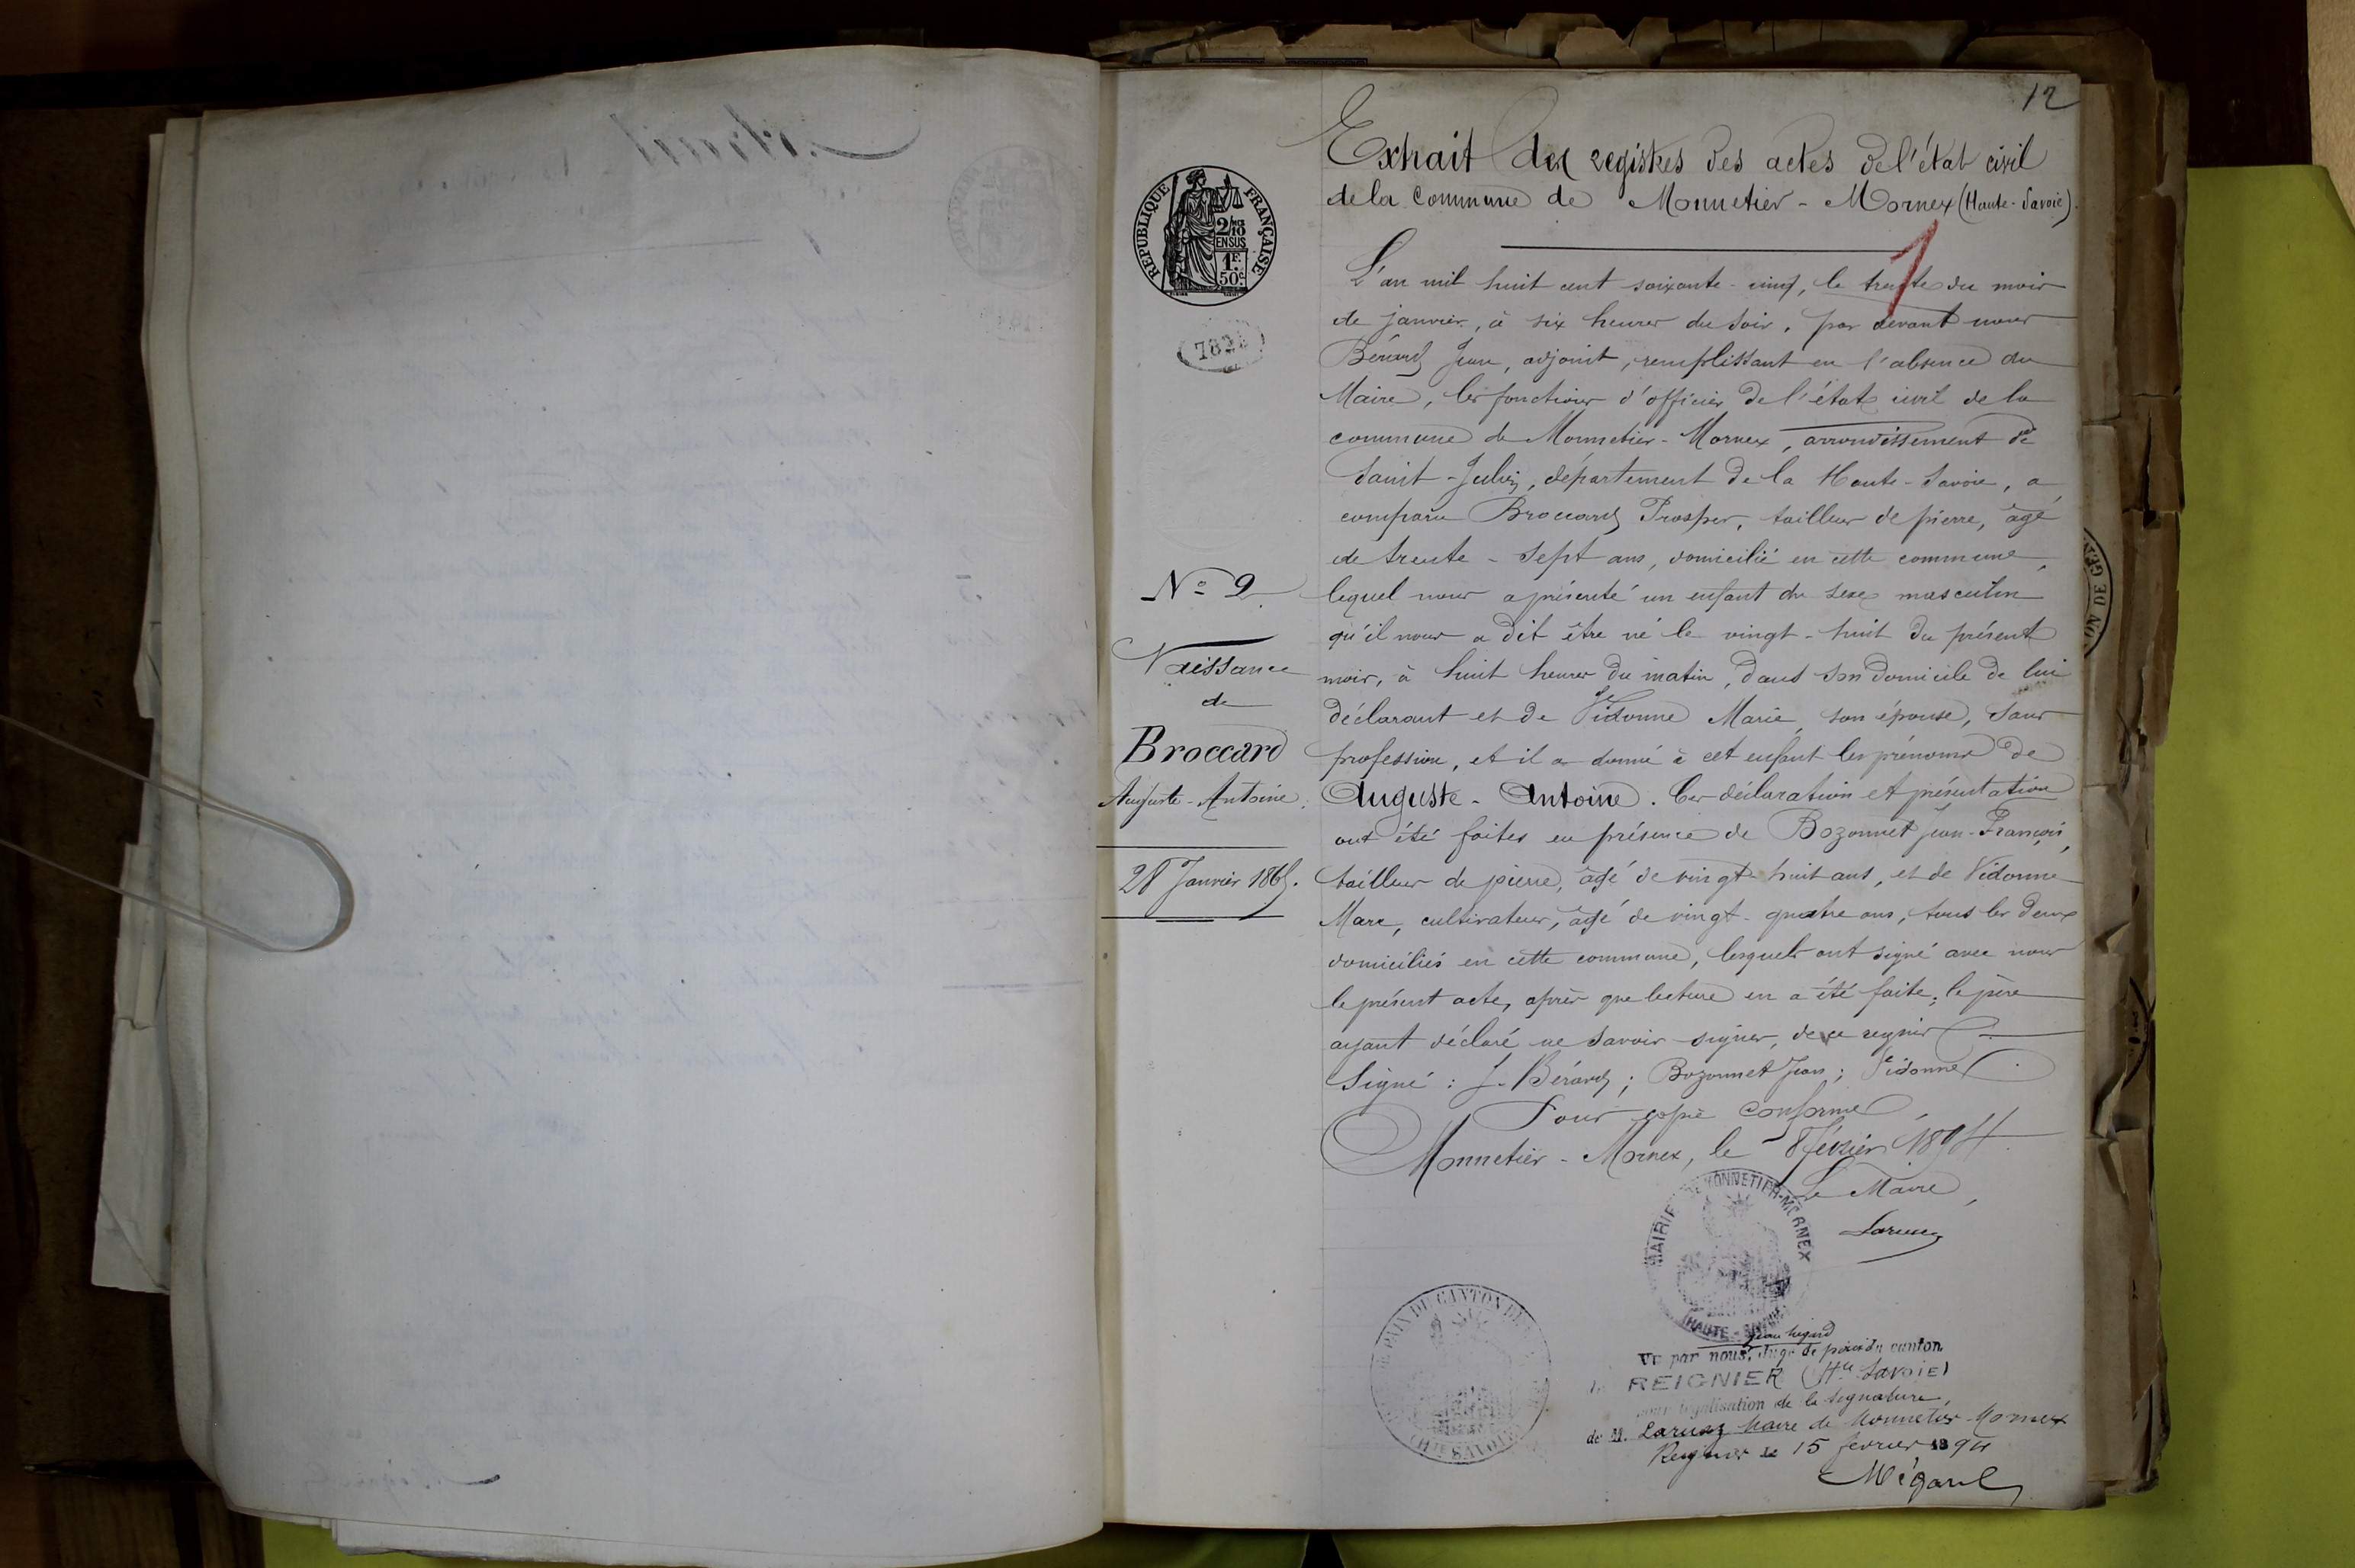 12
Extrait des registres des actes de l'état civil
de la Commune de Monnetier - Mornex (Haute-Savoie).
REPUBLIQUE FRANÇAISE
2/10
EN SUS
1F.
50c.
782
1
L'an mil huit cent soixante-cinq, le trente du mois
de janvier, à six heures du soir, par devant nous
Bérard Jean, adjoint, remplissant en l'absence du
Maire, les fonctions d'officier de l'état civil de la
commune de Monnetier-Mornex, arrondissement de
Saint-Julien, département de la Haute-Savoie, a
comparu Broccard Prosper, tailleur de pierre, âgé
de trente-sept ans, domicilié en cette commune,
lequel nous a présenté un enfant du sexe masculin
qu'il nous a dit être né le vingt-huit du présent
mois, à huit heures du matin, dans son domicile de lui
déclarant et de Vidonne Marie, son épouse, sans
profession, et il a donné à cet enfant les prénoms de
Auguste-Antoine. Ces déclaration et présentation
ont été faites en présence de Bozonnet Jean-François,
tailleur de pierre, âgé de vingt-huit ans, et de Vidonne
Marc, cultivateur, âgé de vingt-quatre ans, tous les deux
domiciliés en cette commune, lesquels ont signé avec nous
le présent acte, après que lecture en a été faite, le père
ayant déclaré ne savoir signer, de ce requis.
Signé : J. Bérard ; Bozonnet Jean ; Vidonne
Pour copie conforme,
Monnetier-Mornex, le 8 février 1894
Le Maire,
Laruaz
N° 2
Naissance
de
Broccard
Auguste-Antoine.
28 Janvier 1865.
MAIRIE DE MONNETIER-MORNEX
(HAUTE-SAVOIE)
PAIX DU CANTON DE
(Hte SAVOIE)
Vu par nous, Juge de paix du canton
REIGNIER (Hte SAVOIE)
pour légalisation de la signature
de M. Laruaz Maire de Monnetier-Mornex
Reignier le 15 février 1894
Mégard
ON DE GEN